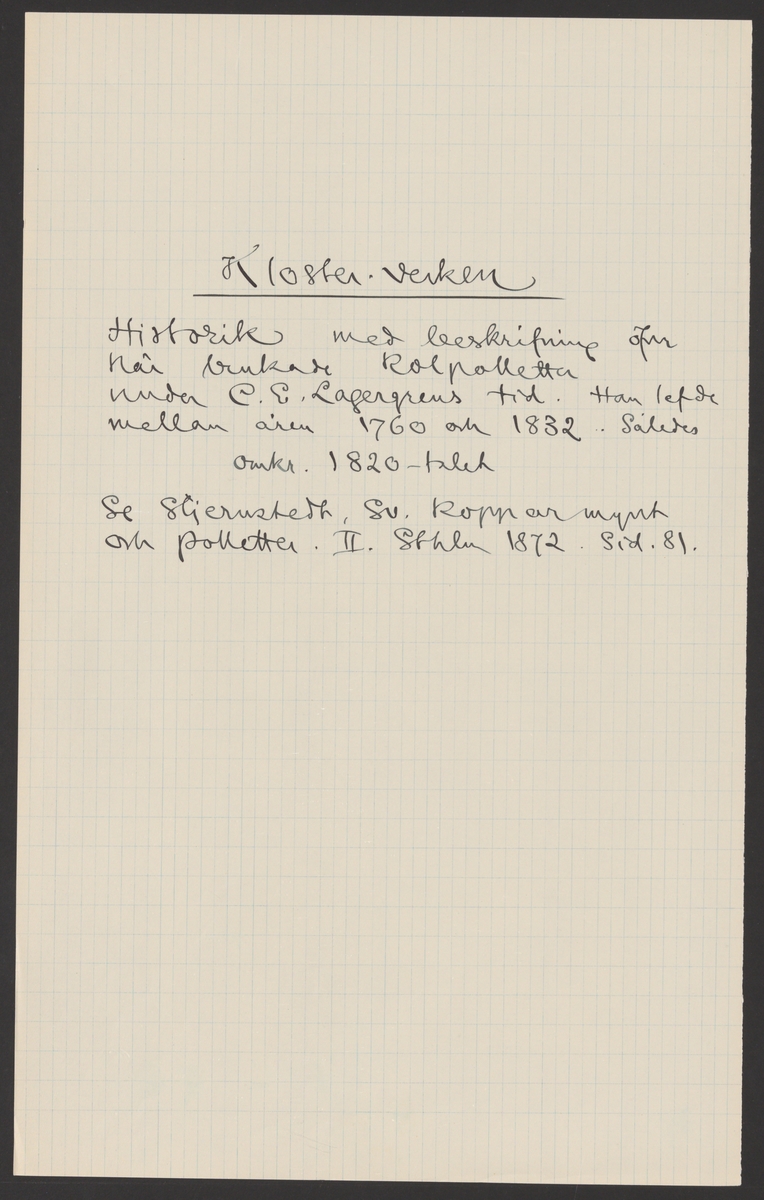 Kloster-verken
Historik med beskrifning öfver
här brukade Kolpolletter
under C. E. Lagergrens tid. Han lefde
mellan åren 1760 och 1832. Således
omkr. 1820-talet
Se Stjernstedt, Sv. Kopparmynt
och polletter. II. Sthlm 1872. Sid. 81.